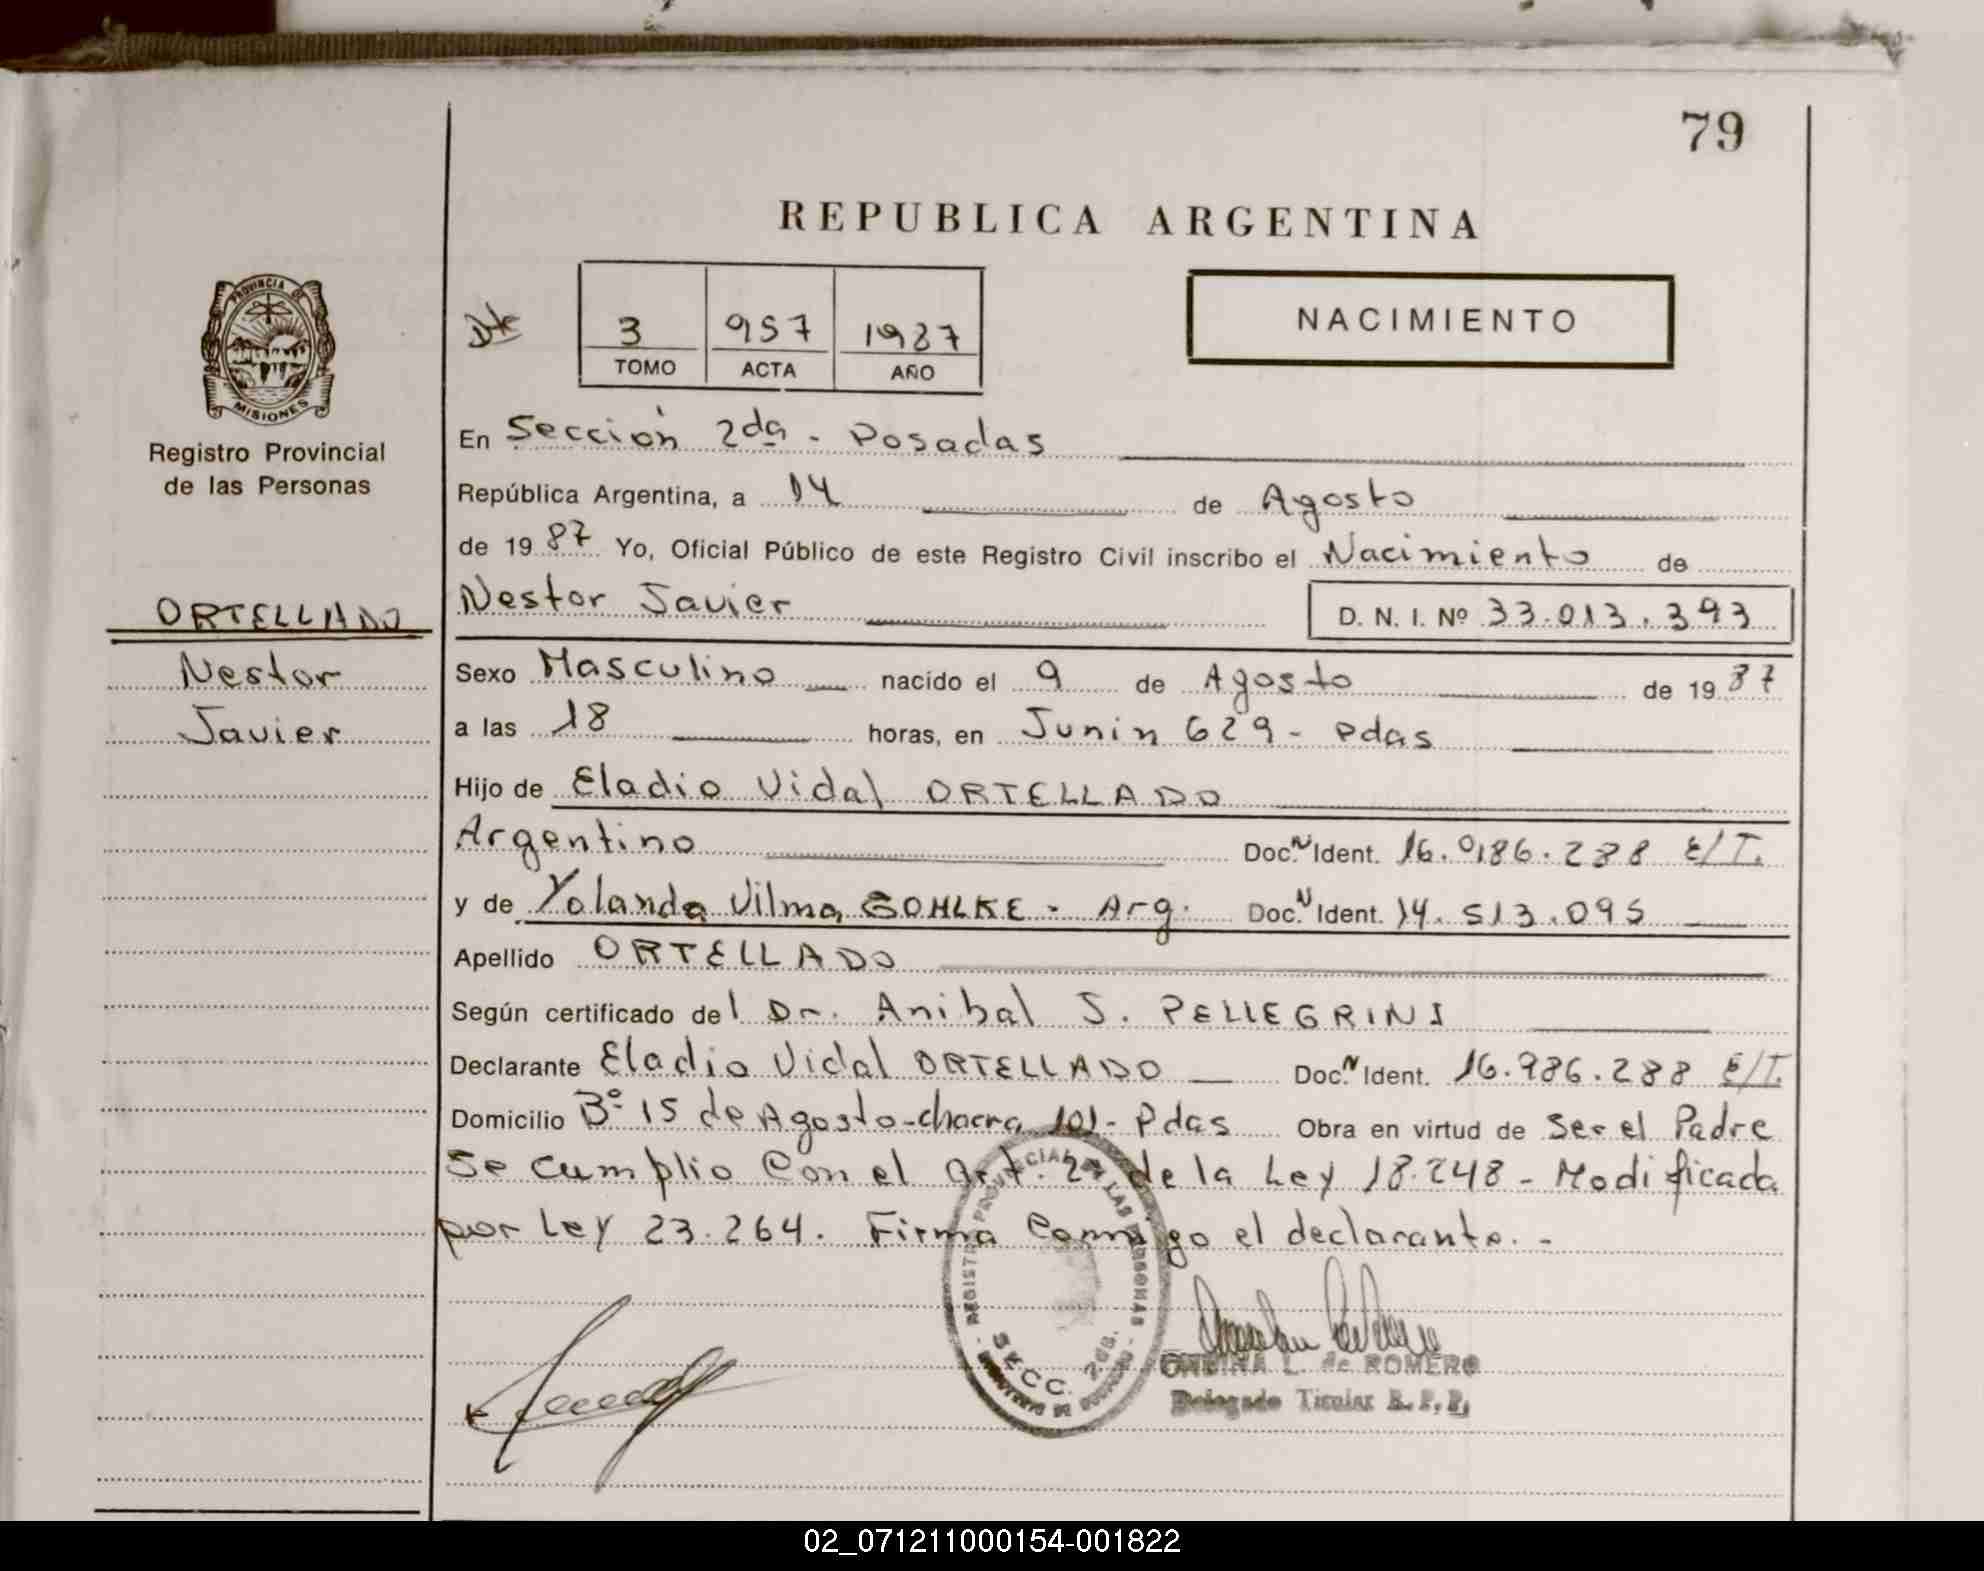 79
REPUBLICA ARGENTINA
PROVINCIA DE
MISIONES
Registro Provincial
de las Personas
Dte
3 957 1987
TOMO ACTA AÑO
NACIMIENTO
En Sección 2da - Posadas
República Argentina, a 14 de Agosto
de 1987 Yo, Oficial Público de este Registro Civil inscribo el Nacimiento de
Nestor Javier D. N. I. Nº 33.013.393
ORTELLADO
Nestor
Javier
Sexo Masculino nacido el 9 de Agosto de 1987
a las 18 horas, en Junin 629 - Pdas
Hijo de Eladio Vidal ORTELLADO
Argentino Doc. N Ident. 16.986.288 E/T.
y de Yolanda Vilma GOHLKE - Arg. Doc. N Ident. 14.513.095
Apellido ORTELLADO
Según certificado del Dr. Anibal J. PELLEGRINI
Declarante Eladio Vidal ORTELLADO Doc. N Ident. 16.986.288 E/T.
Domicilio Bº 15 de Agosto - chacra 101 - Pdas Obra en virtud de Ser el Padre
Se cumplio con el Art. 2º de la Ley 18.248 - Modificada
por Ley 23.264. Firma conmigo el declarante. -
REGISTRO PROVINCIAL DE LAS PERSONAS
SECC. 2da.
L. de ROMERO
Delegado Titular R. P. P.
02_071211000154-001822